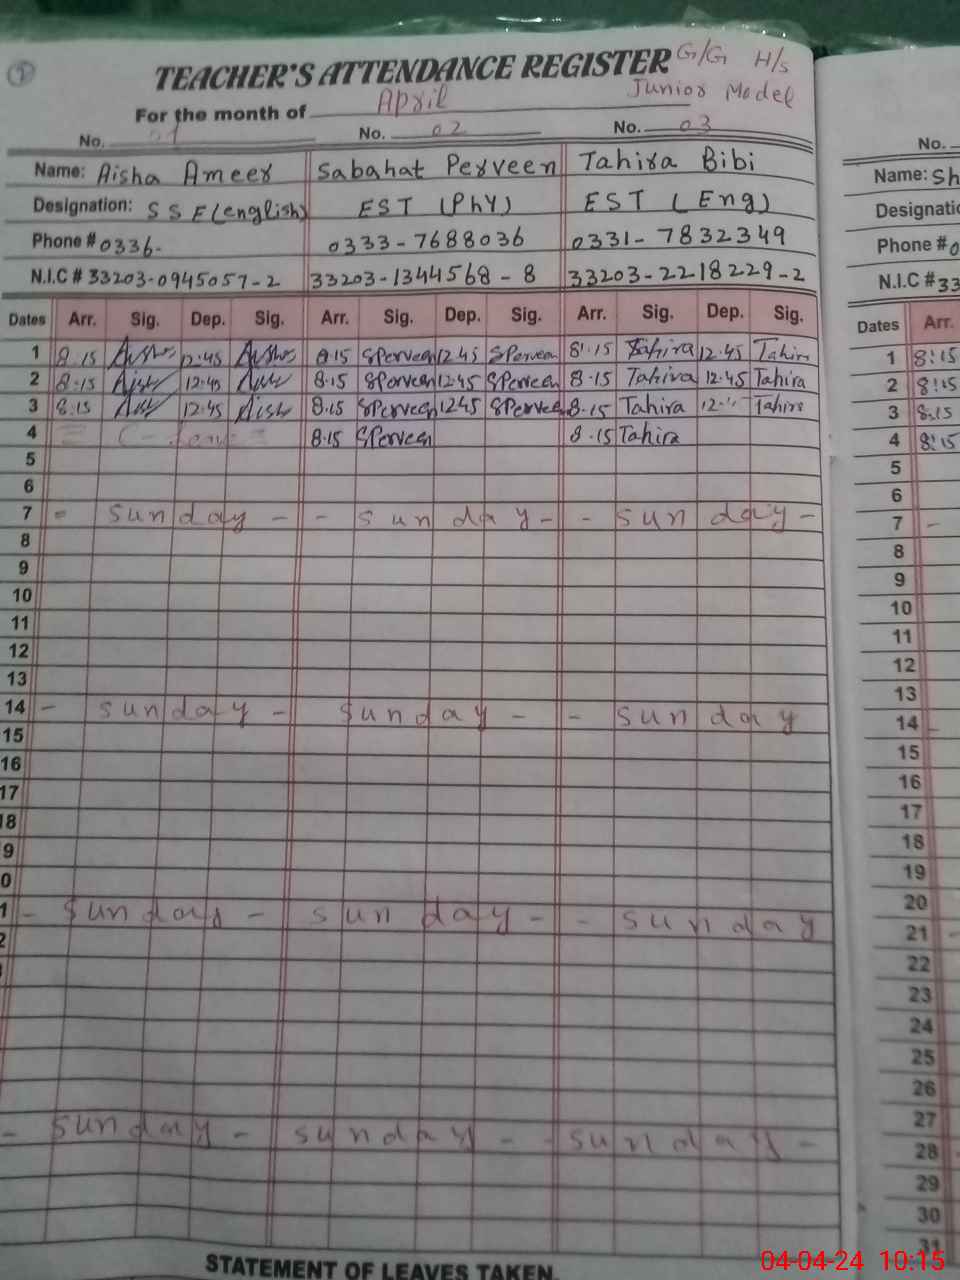 1
TEACHER'S ATTENDANCE REGISTER G/G H/s
For the month of April Junior Model
No. 01 No. 02 No. 03 No.
Name: Aisha Ameer Sabahat Perveen Tahira Bibi Name: Sh
Designation: SSE(english) EST (Phy) EST (Eng) Designatio
Phone # 0336- 0333-7688036 0331-7832349 Phone # 0
N.I.C # 33203-0945057-2 33203-1344568-8 33203-2218229-2 N.I.C # 33
Dates Arr. Sig. Dep. Sig. Arr. Sig. Dep. Sig. Arr. Sig. Dep. Sig. Dates Arr.
1 8.15 12:45 8.15 SPerveen 12 45 SPerveen 8:15 Tahira 12.45 Tahir 1 8:15
2 8.15 12.45 8.15 SPerveen 12.45 SPerveen 8.15 Tahira 12.45 Tahira 2 8:15
3 8.15 12.45 8.15 SPerveen 1245 SPervee 8.15 Tahira 12. Tahira 3 8.15
4 8.15 SPerveen 8.15 Tahira 4 8:15
5 5
6 6
7 - sunday - - sunday - - sunday - 7 -
8 8
9 9
10 10
11 11
12 12
13 13
14 - sunday - sunday - - sunday 14 -
15 15
16 16
17 17
18 18
9 19
0 20
1 - sunday - sunday - - sunday 21 -
2 22
23
24
25
26
27
- sunday - sunday - - sunday - 28
29
30
31
STATEMENT OF LEAVES TAKEN.
04-04-24 10:15